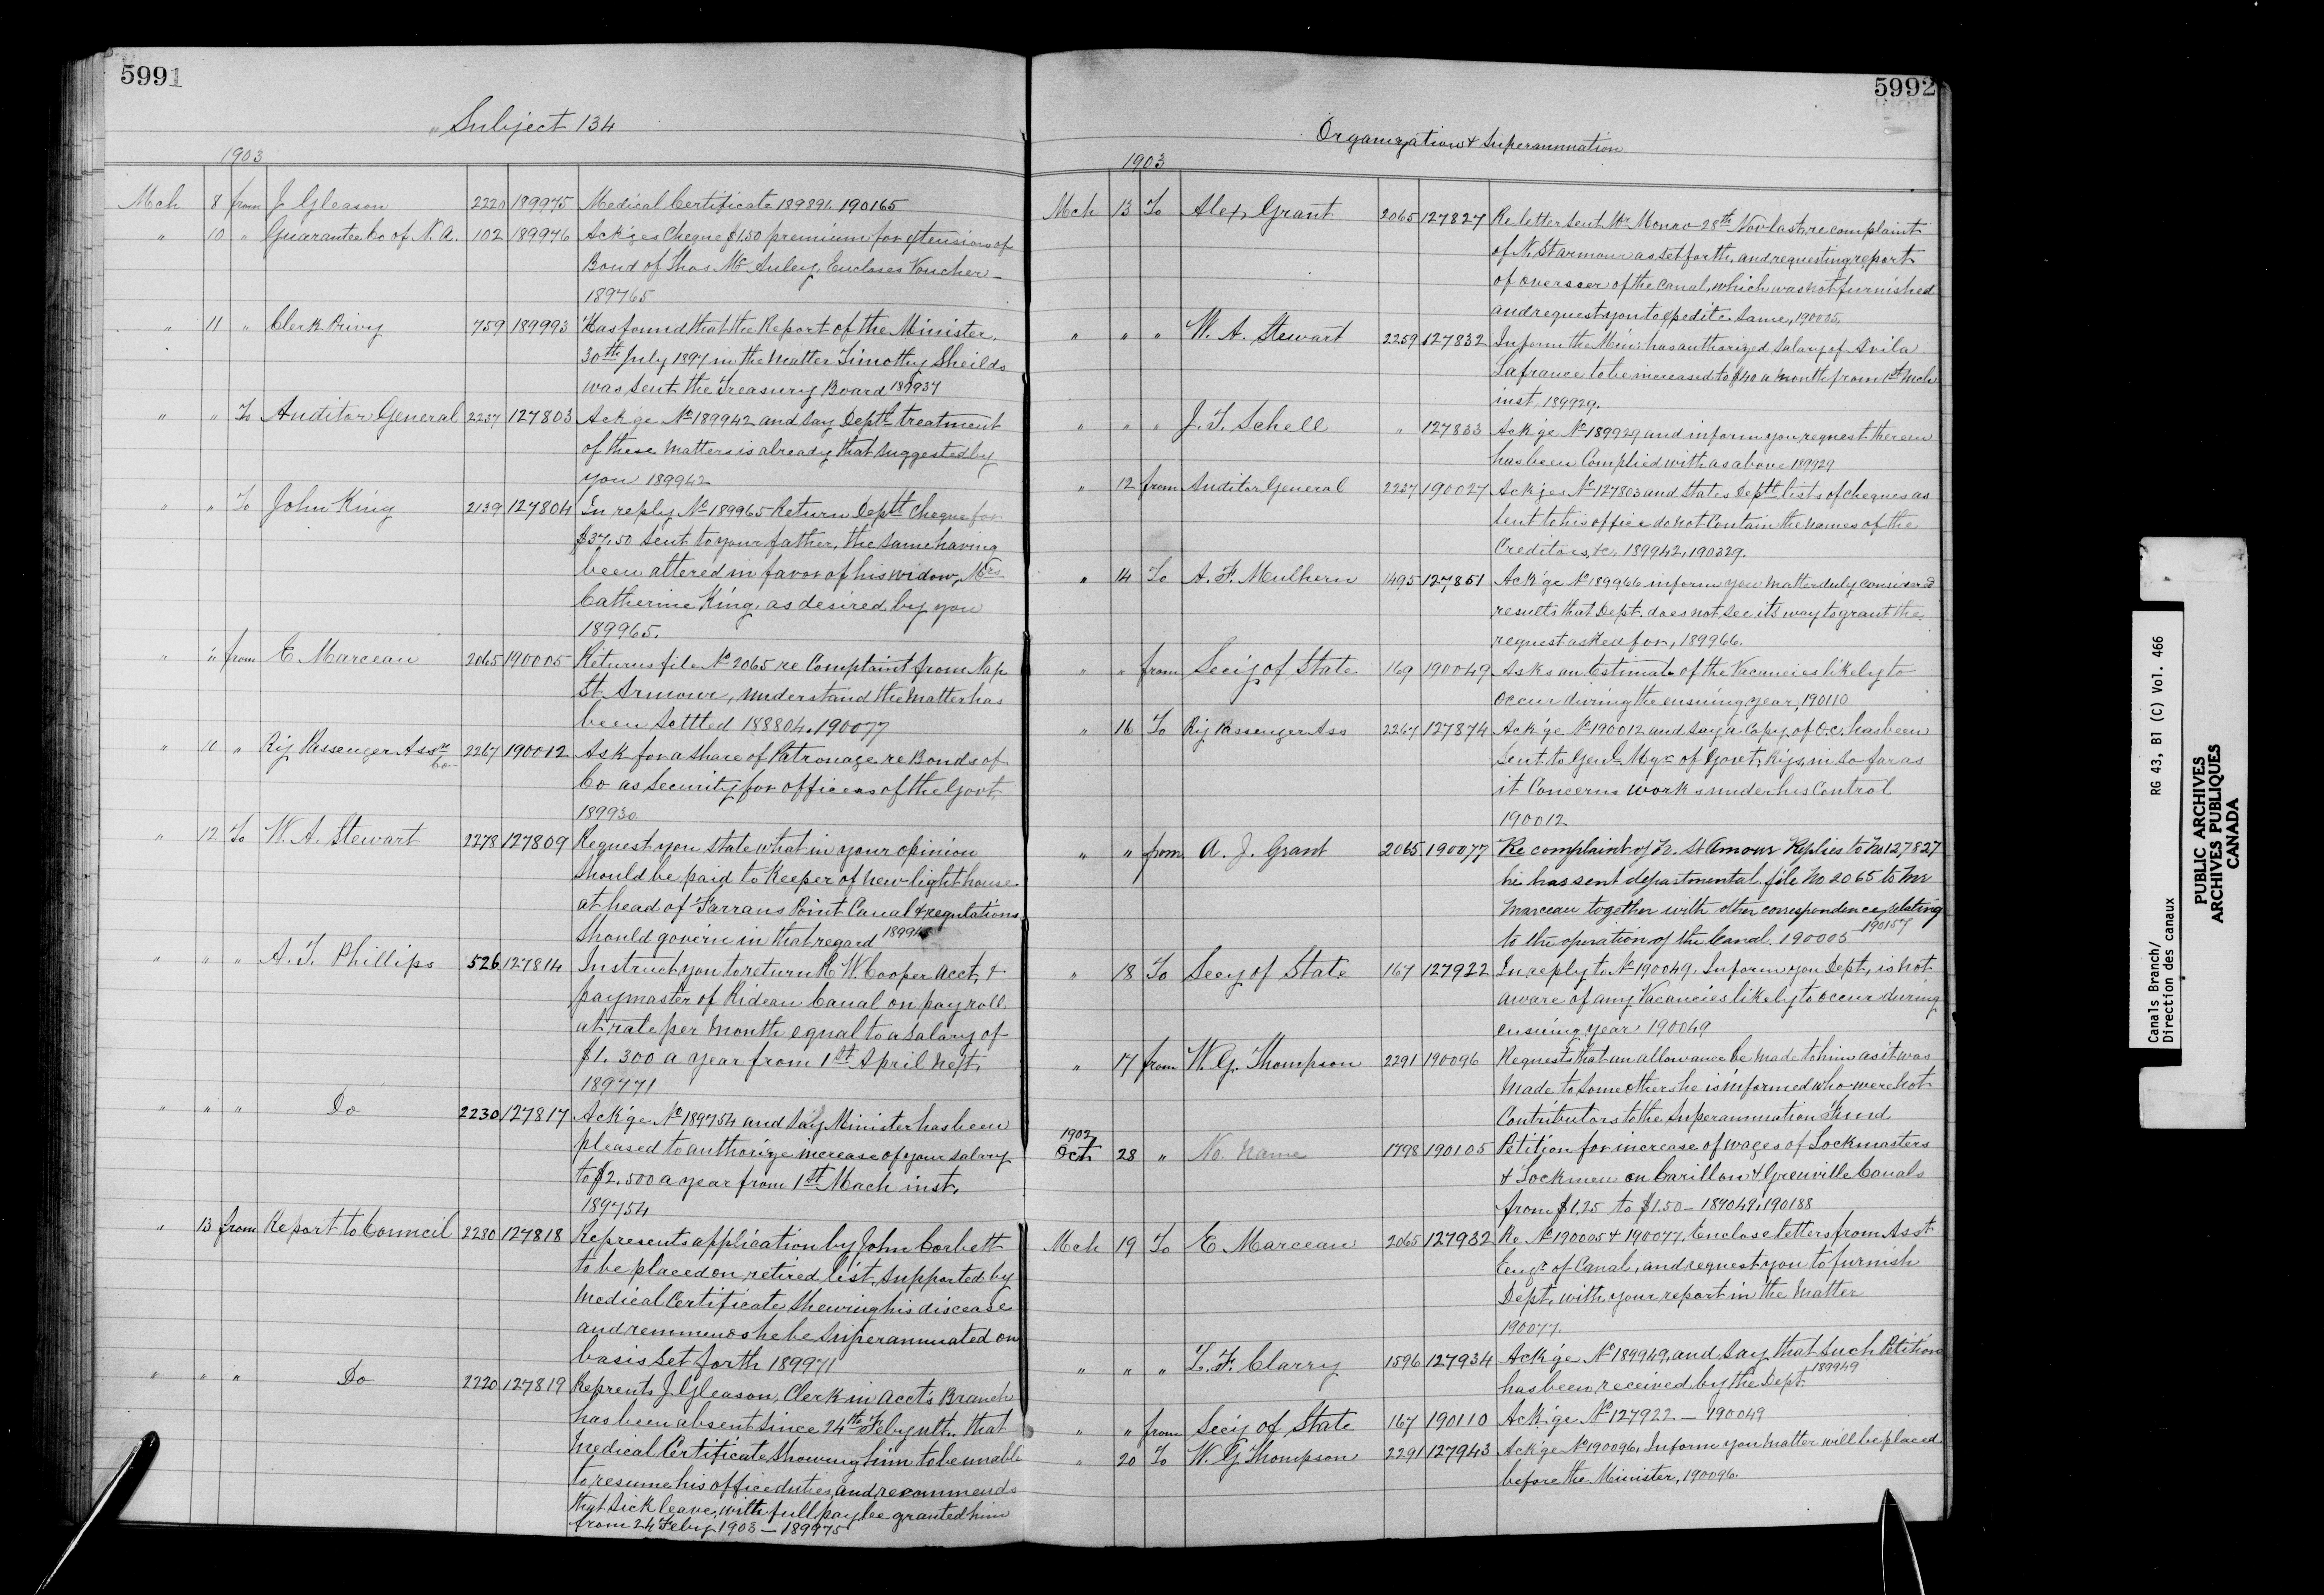 5991
" Subject 134
1903
Mch 8 from J Gleason 2220 189975 Medical Certificate 189891. 190165
" 10 " Guarantee Co of N. A. 102 189976 Ack'ges Cheque $1.50 premium for extension of
Bond of Thos. McAuley, Encloses Voucher —
189765
" 11 " Clerk Privy 759 189993 Has found that the Report of the Minister,
30th July 1897 in the matter Timothy Sheilds
was sent the Treasury Board 189937
" " To Auditor General 2237 127803 Ack'ge No 189942 and say Deptl treatment
of these matters is already that suggested by
you 189942
" " To John King 2139 127804 In reply No 189965 Return Deptl Cheque for
$37.50 sent to your father, the same having
been altered in favor of his widow, Mrs
Catherine King, as desired by you
189965.
" " from E Marceau 2065 190005 Returns file No 2065 re Complaint from Nap
St Armour, understand the matter has
been settled 188804, 190077
" 10 " Ry Passenger Assn Co 2267 190012 Ask for a share of Patronage re Bonds of
Co as Security for officers of the Govt.
189930
" 12 To W. A. Stewart 2278 127809 Request you state what in your opinion
should be paid to Keeper of new light house
at head of Farrans Point Canal & regulations
should govern in that regard
" " " A. T. Phillips 526 127814 Instruct you to return R W. Cooper acct, &
paymaster of Rideau Canal on pay roll
at rate per month equal to a salary of
$1.300 a year from 1st April next,
189771
" " " Do 2230 127817 Ack'ge No 189754 and say Minister has been
pleased to authorize increase of your salary
to $2,500 a year from 1st Mach inst.
189754
" 13 from Report to Council 2280 127818 Represents application by John Corbett
to be placed on retired list, supported by
medical Certificate shewing his discease
and remmends he be superannuated on
basis set forth 189971
" " " Do 2220 127819 Reprents J Gleason, Clerk in Acct's Branch
has been absent since 24th Feby ult., that
medical Certificate showing him to be unable
to resume his office duties, and recommends
that sick leave, with full pay be granted him
from 24 Feby 1903 — 189975
5992
Organization & Superannuation
1903
Mch 13 To Alex Grant 2065 127827 Re letter sent Mr Monro 28th Nov last, re complaint
of N. St armour as set forth, and requesting report
of overseer of the canal, which was not furnished
and request you to expedite same, 190005.
" " " W. A. Stewart 2259 127832 Inform the Min: has authorized salary of Avila
Lafrance to be increased to $40 a month from 1st Mch
inst, 189929.
" " " J. T. Schell " 127833 Ack'ge No 189929 and inform you request therein
has been Complied with as above 189929
" 12 from Auditor General 2237 190027 Ack'ges No 127803 and states Deptl lists of cheques as
sent to his office do not Contain the names of the
Creditors, &c. 189942, 190329.
" 14 To A. F. Mulhern 1495 127851 Ack'ge No 189966 inform you matter duly considered
results that Dept. does not see its way to grant the
request asked for, 189966.
" " from Secy of State 169 190049 Asks an Estimate of the Vacancies likely to
Occur during the ensuing year, 190110
" 16 To Ry Passenger Ass 2267 127874 Ack'ge No 190012 and say a Copy of O.C. has been
sent to Genl Mgr of Govt. Rys, in so far as
it Concerns works under his Control
190012
" " from A. J. Grant 2065 190077 Re complaint of N. St Amour Replies to No 127827
he has sent departmental file No 2065 to Mr
Marceau together with other correspondence relating
to the operation of the Canal. 190005 190157
" 18 To Secy of State 167 127922 In reply to No 190049, Inform you Dept, is not
aware of any Vacancies likely to occur during
ensuing year 190049
" 17 from W. G. Thompson 2291 190096 Requests that an allowance be made to him as it was
made to some others he is informed who were not
Contributors to the Superannuation Fund
1902
Oct 28 " No. name 1798 190105 Petition for increase of wages of Lockmasters
& Lockmen on Carillon & Grenville Canals
from $1.25 to $1.50 — 189049, 190188
Mch 19 To E Marceau 2065 127932 Re No 190005 & 190077, Enclose letters from Asst
Engr of Canal, and request you to furnish
Dept, with your report in the matter
190077.
" " " L. F. Clarry 1596 127934 Ack'ge No 189949, and say that such Petition
has been received by the Dept. 189949
" " from Secy of State 167 190110 Ack'ge No 127922 — 190049
" 20 To W. G Thompson 2291 127943 Ack'ge No 190096, Inform you matter will be placed
before the Minister, 190096.
Canals Branch/ RG 43, B1 (C) Vol. 466
Direction des canaux
PUBLIC ARCHIVES
ARCHIVES PUBLIQUES
CANADA